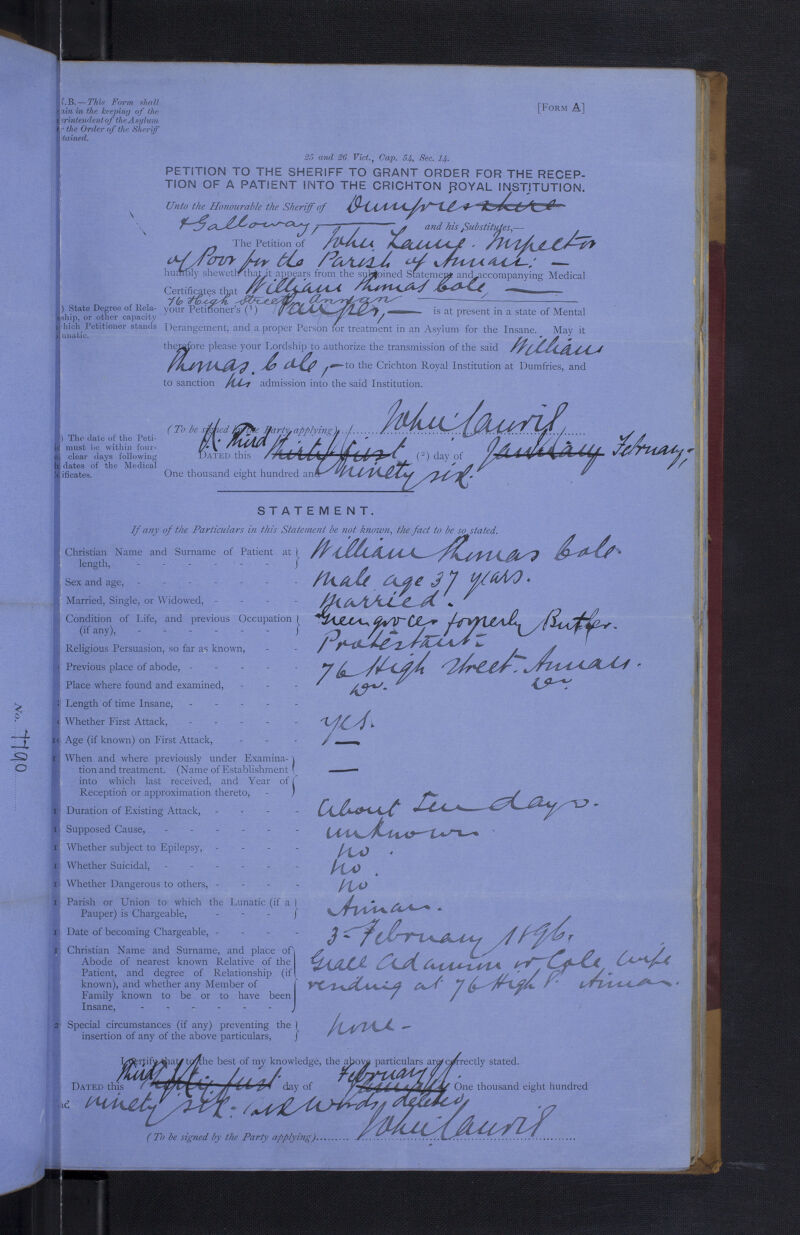 [FORM A]
.B.—This Form shall
ain in the keeping of the
erintendent of the Asylum
the Order of the Sheriff
tained.
25 and 26 Vict., Cap. 54, Sec. 14.
PETITION TO THE SHERIFF TO GRANT ORDER FOR THE RECEP-
TION OF A PATIENT INTO THE CRICHTON ROYAL INSTITUTION.
Unto the Honourable the Sheriff of Dumfries shire
& Galloway, and his Substitutes,—
The Petition of John Laurie Inspector
of Poor for the Parish of Annan: —
humbly sheweth that it appears from the subjoined Statement and accompanying Medical
Certificates that William Thomas Cole, —
76 High Street Annan
your Petitioner's (¹) Pauper, — is at present in a state of Mental
) State Degree of Rela-
ship, or other capacity
hich Petitioner stands
unatic.
Derangement, and a proper Person for treatment in an Asylum for the Insane. May it
therefore please your Lordship to authorize the transmission of the said William
Thomas Cole, — to the Crichton Royal Institution at Dumfries, and
to sanction his admission into the said Institution.
(To be signed by the Party applying) John Laurie
) The date of the Peti-
must be within four-
clear days following
dates of the Medical
ificates.
DATED this Third Thirty first (²) day of January February,
One thousand eight hundred and ninety six.
STATEMENT.
If any of the Particulars in this Statement be not known, the fact to be so stated.
Christian Name and Surname of Patient at William Thomas Cole
length,
Sex and age, Male age 37 years.
Married, Single, or Widowed, Married.
Condition of Life, and previous Occupation Greengrocer formerly Butler.
(if any),
Religious Persuasion, so far as known, Protestant
Previous place of abode, 76 High Street. Annan.
Place where found and examined, Do. Do.
Length of time Insane,
Whether First Attack, yes.
Age (if known) on First Attack, —
When and where previously under Examina-
tion and treatment. (Name of Establishment —
into which last received, and Year of
Reception or approximation thereto,
Duration of Existing Attack, About Ten days.
Supposed Cause, unknown
Whether subject to Epilepsy, no.
Whether Suicidal, no.
Whether Dangerous to others, no
Parish or Union to which the Lunatic (if a
Pauper) is Chargeable, Annan.
Date of becoming Chargeable, 3 February 1896.
Christian Name and Surname, and place of
Abode of nearest known Relative of the Grace or Cole, wife
Patient, and degree of Relationship (if residing at 76 High St. Annan.
known), and whether any Member of
Family known to be or to have been
Insane,
Special circumstances (if any) preventing the none —
insertion of any of the above particulars,
I certify that to the best of my knowledge, the above particulars are correctly stated.
DATED this Third day of February January One thousand eight hundred
ninety six. words deleted
(To be signed by the Party applying) John Laurie
No. 7790